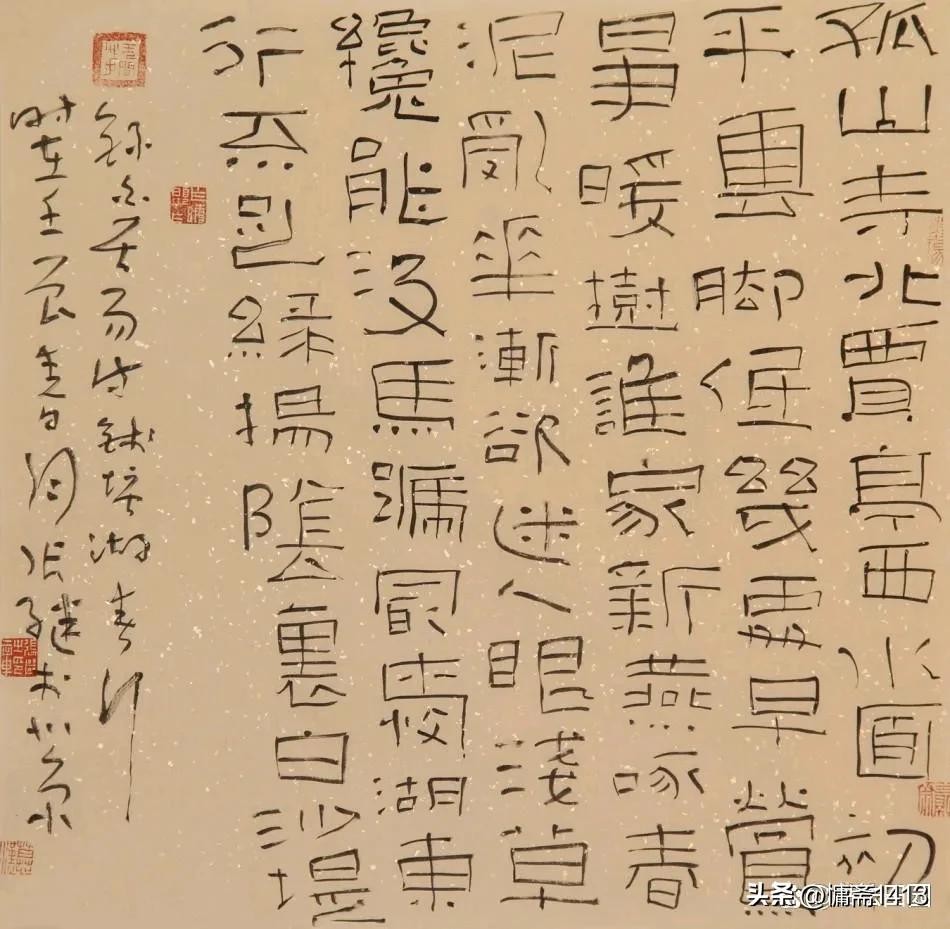 孤山寺北賈亭西水面初
平雲脚低幾處早鶯
爭暖樹誰家新燕啄春
泥亂花漸欲迷人眼淺草
纔能没馬蹄最愛湖東
行不足綠楊陰裏白沙堤
錄白居易诗錢塘湖春行
时在壬辰春日张继於北京
头条 @慵斋1413